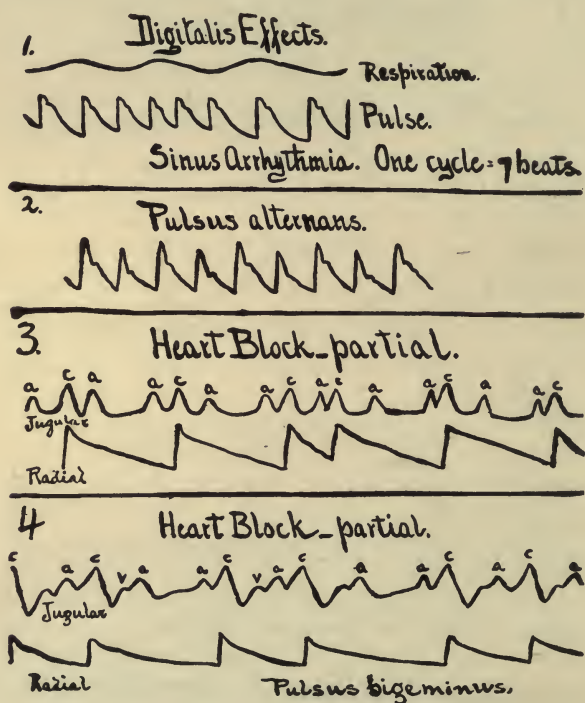 Digitalis Effects.
1.
Respiration.
Pulse.
Sinus Arrhythmia. One cycle = 7 beats.
2.
Pulsus alternans.
3.
Heart Block_partial.
a c a a c a a c a c a a c a a c
Jugular
Radial
4
Heart Block_partial.
c a c v a a c v a c a a c a c a
Jugular
Radial
Pulsus bigeminus.